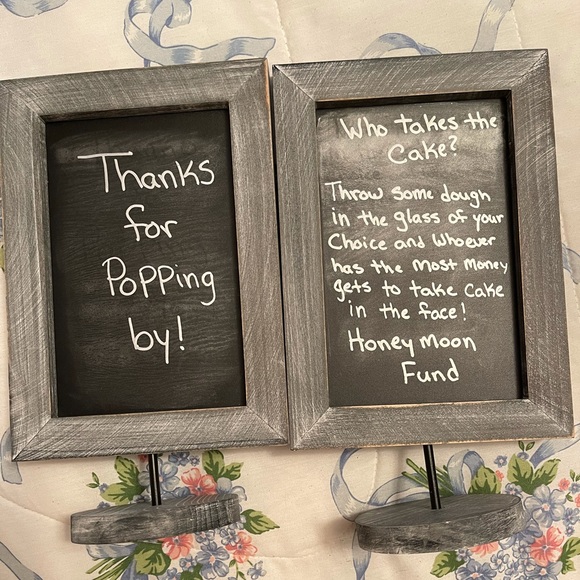 Thanks
for
Popping
by!
Who takes the
Cake?
Throw some dough
in the glass of your
Choice and Whoever
has the most money
gets to take Cake
in the face!
Honey moon
Fund